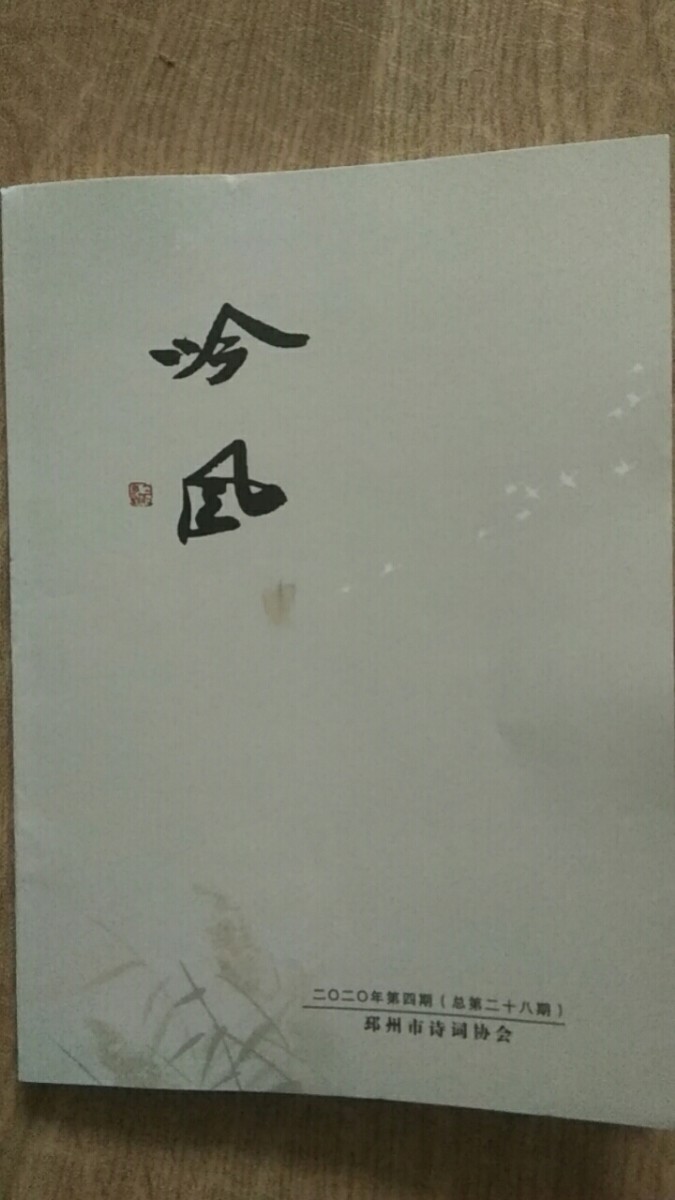 吟
风
二〇二〇年第四期（总第二十八期）
邳州市诗词协会